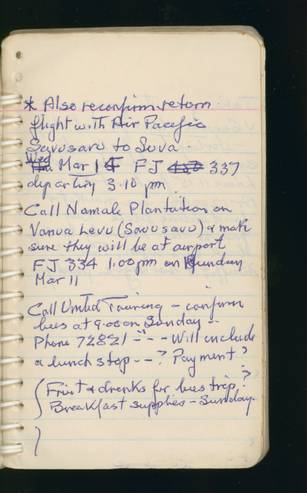 * Also reconfirm return
flight with Air Pacific
Savusavu to Suva.
Wed Mar 14 FJ 337
departing 3.10 pm
Call Namale Plantation on
Vanua Levu (Savusavu) & make
sure they will be at airport
FJ 334 1.00 pm on Sunday
Mar 11
Call United Touring - confirm
bus at 9.00 on Sunday --
Phone 72821 --- Will include
a lunch stop --? Payment?
Fruit & drinks for bus trip?
Breakfast supplies - Sunday.